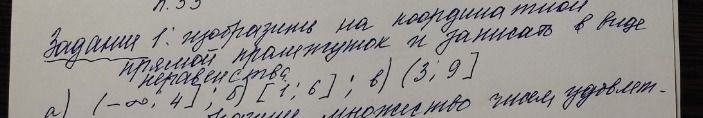 п. 33
Задание 1: изобразить на координатной
прямой промежуток и записать в виде
неравенства
а) (-∞; 4]; б) [1; 6]; в) (3; 9]
множество чисел удовлет-